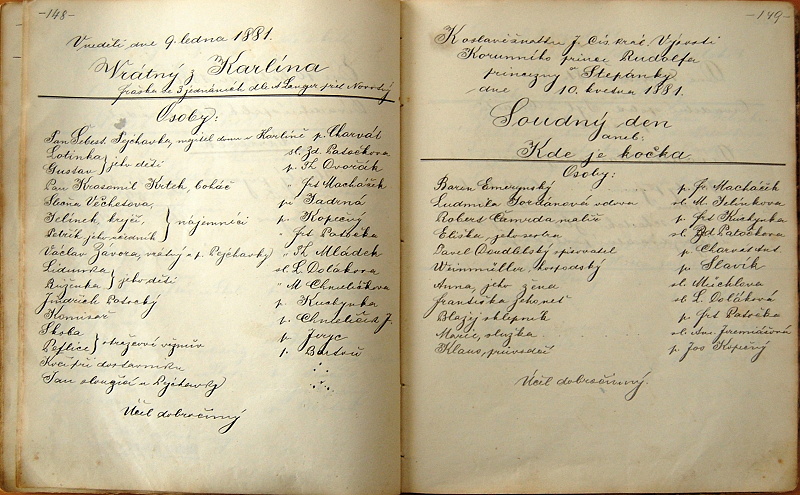 -148-
V neděli dne 9. ledna 1881.
Vrátný z Karlína
fraška ve 3 jednáních dle A Langer přel Novotný
Osoby:
Pan Šebest. Pejchavka, majitel domu v Karlíně p. Charvát
Lotinka } jeho děti sl. Zd. Patočkova
Gustav } " Th. Dvořák
Pan Krasomil Krtek, boháč " frt Macháček
Slečna Věchetova, pí Zadrná
Jelínek, krejčí, } nájemníci p. Kopecký
Petrik, jeho } " frt Patočka
Václav Závora, vrátný u p. Pejchavky " Th. Mládek
Lidunka } jeho děti sl. L. Dolákova
Růženka } " M Chmelíkova
Jindřich Patocký p. Kuchynka
Komisař p. Chmelíček J.
Škola } strážcové p. Jeryc
Peflic } p. Bartoň
Kočí při dostavníku
Pan sloužící u Pejchavky
Účel dobročinný
-149-
K oslavě sňatku J. Cís. král. Výsosti
Korunního prince Rudolfa
princezny Štěpánky
dne 10. května 1881.
Soudný den
aneb:
Kde je kočka
Osoby:
Baron Emerynský p. Fr. Macháček
Ludmila Jordánova vdova sl. M. Jelínkova
Robert malíř p. frt Kuchynka
Eliška, jeho sestra sl. Zd Patočkova
Pavel Doudlebský spisovatel p. Charvát Ant.
Weinmüller, hospodský p. Slavík
Anna, jeho žena sl. Mücklova
Františka jeho neť sl. L. Doláková
Blažej sklepník p. frt Patočka
Marie, služka sl. An. Jeremiášova
Klaus, průvodčí p. Jos Kopecký
Účel dobročinný.